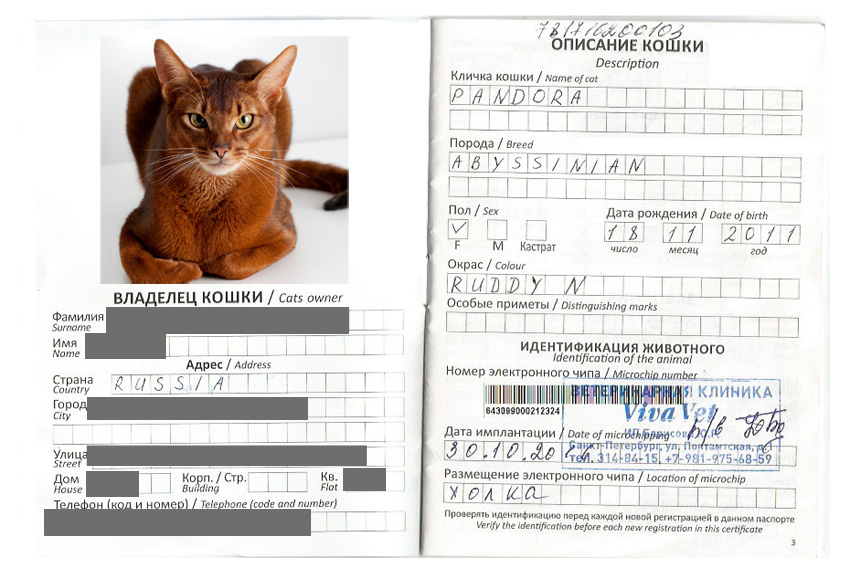 ВЛАДЕЛЕЦ КОШКИ / Cats owner
Фамилия
Surname
Имя
Name
Адрес / Address
Страна
Country
RUSSIA
Город
City
Улица
Street
Дом
House
Корп. / Стр.
Building
Кв.
Flat
Телефон (код и номер) / Telephone (code and number)
ОПИСАНИЕ КОШКИ
Description
Кличка кошки / Name of cat
PANDORA
Порода / Breed
ABYSSINIAN
Пол / Sex
F M Кастрат
Дата рождения / Date of birth
18 11 2011
число месяц год
Окрас / Colour
RUDDY N
Особые приметы / Distinguishing marks
ИДЕНТИФИКАЦИЯ ЖИВОТНОГО
Identification of the animal
Номер электронного чипа / Microchip number
643099000212324
ВЕТЕРИНАРНАЯ КЛИНИКА
Viva Vet
Дата имплантации / Date of microchipping
30.10.20
Санкт-Петербург, ул.
тел. 314-84-15, +7-981-975-68-59
Размещение электронного чипа / Location of microchip
холка
Проверять идентификацию перед каждой новой регистрацией в данном паспорте
Verify the identification before each new registration in this certificate
3